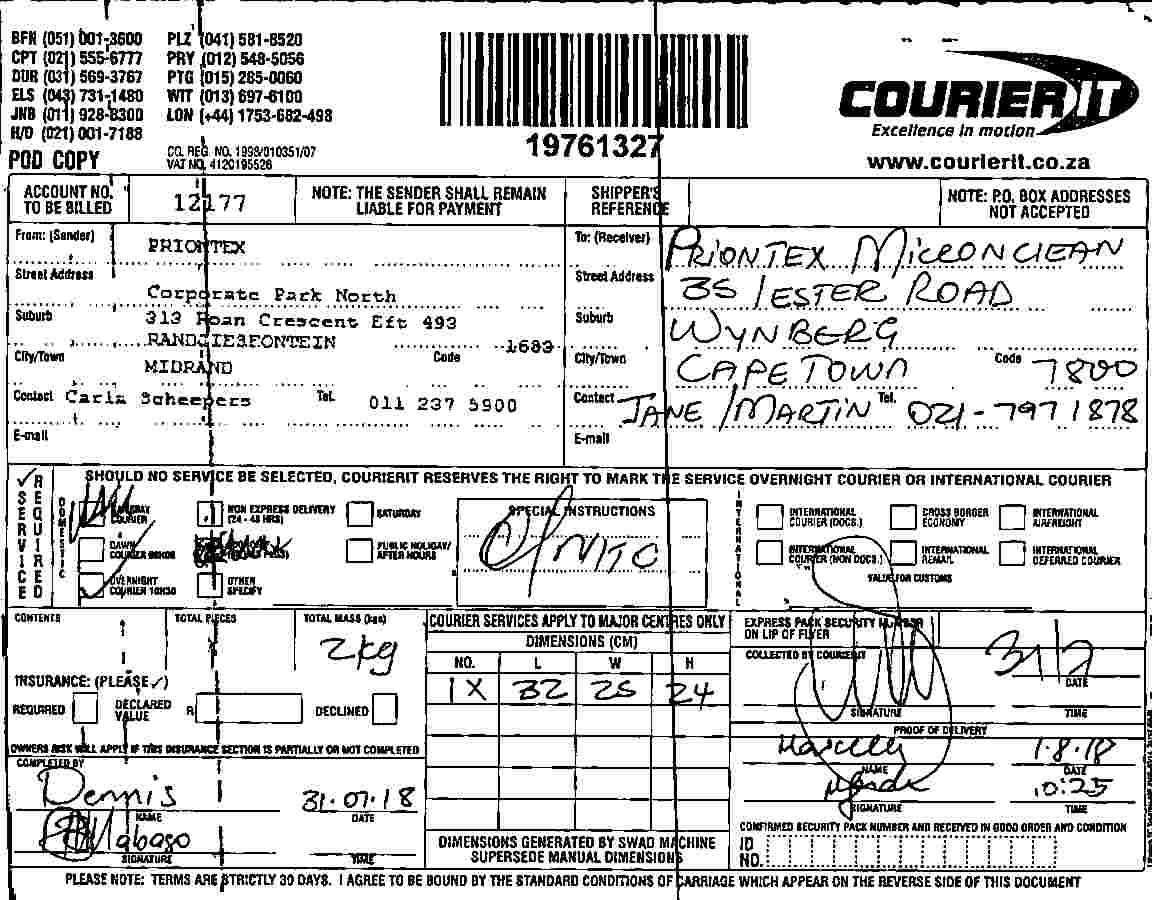 BFN (051) 001-3600 PLZ (041) 581-8520
CPT (021) 555-6777 PRY (012) 548-5056
DUR (031) 569-3767 PTG (015) 285-0060
ELS (043) 731-1480 WIT (013) 697-6100
JNB (011) 928-8300 LON (+44) 1753-682-498
H/O (021) 001-7188
POD COPY
CO. REG. NO. 1998/010351/07
VAT NO. 4120195526
19761327
COURIER IT
Excellence in motion
www.courierit.co.za
ACCOUNT NO. TO BE BILLED
12177
NOTE: THE SENDER SHALL REMAIN LIABLE FOR PAYMENT
SHIPPER'S REFERENCE
NOTE: P.O. BOX ADDRESSES NOT ACCEPTED
From: (Sender) PRIONTEX
Street Address Corporate Park North
Suburb 313 Roan Crescent Eft 493
RANDJIESFONTEIN
City/Town MIDRAND Code 1683
Contact Carla Scheepers Tel. 011 237 5900
E-mail
To: (Receiver) PRIONTEX MICRONCLEAN
Street Address 35 LESTER ROAD
Suburb WYNBERG
City/Town CAPE TOWN Code 7800
Contact JANE/MARTIN Tel. 021-797 1878
E-mail
✓ SERVICE REQUIRED
SHOULD NO SERVICE BE SELECTED, COURIERIT RESERVES THE RIGHT TO MARK THE SERVICE OVERNIGHT COURIER OR INTERNATIONAL COURIER
DOMESTIC
COURIER
NON EXPRESS DELIVERY (24 - 48 HRS)
SATURDAY
DAWN COURIER
PUBLIC HOLIDAY/ AFTER HOURS
OVERNIGHT COURIER 10H30
OTHER SPECIFY
SPECIAL INSTRUCTIONS
INTERNATIONAL
INTERNATIONAL COURIER (DOCS.)
CROSS BORDER ECONOMY
INTERNATIONAL AIRFREIGHT
INTERNATIONAL COURIER (NON DOCS.)
INTERNATIONAL REMAIL
INTERNATIONAL DEFERRED COURIER
VALUE FOR CUSTOMS
CONTENTS
TOTAL PIECES
TOTAL MASS (kgs)
2kg
INSURANCE: (PLEASE ✓)
REQUIRED DECLARED VALUE R DECLINED
OWNERS RISK WILL APPLY IF THIS INSURANCE SECTION IS PARTIALLY OR NOT COMPLETED
COURIER SERVICES APPLY TO MAJOR CENTRES ONLY
DIMENSIONS (CM)
NO. L W H
1 X 32 25 24
DIMENSIONS GENERATED BY SWAD MACHINE SUPERSEDE MANUAL DIMENSIONS
COMPLETED BY
Dennis 31.07.18
NAME DATE
Mabaso
SIGNATURE TIME
EXPRESS PACK SECURITY NUMBER ON LIP OF FLYER
COLLECTED BY COURIERIT
31/7
DATE
SIGNATURE TIME
PROOF OF DELIVERY
1.8.18
NAME DATE
10:25
SIGNATURE TIME
CONFIRMED SECURITY PACK NUMBER AND RECEIVED IN GOOD ORDER AND CONDITION
ID NO.
PLEASE NOTE: TERMS ARE STRICTLY 30 DAYS. I AGREE TO BE BOUND BY THE STANDARD CONDITIONS OF CARRIAGE WHICH APPEAR ON THE REVERSE SIDE OF THIS DOCUMENT